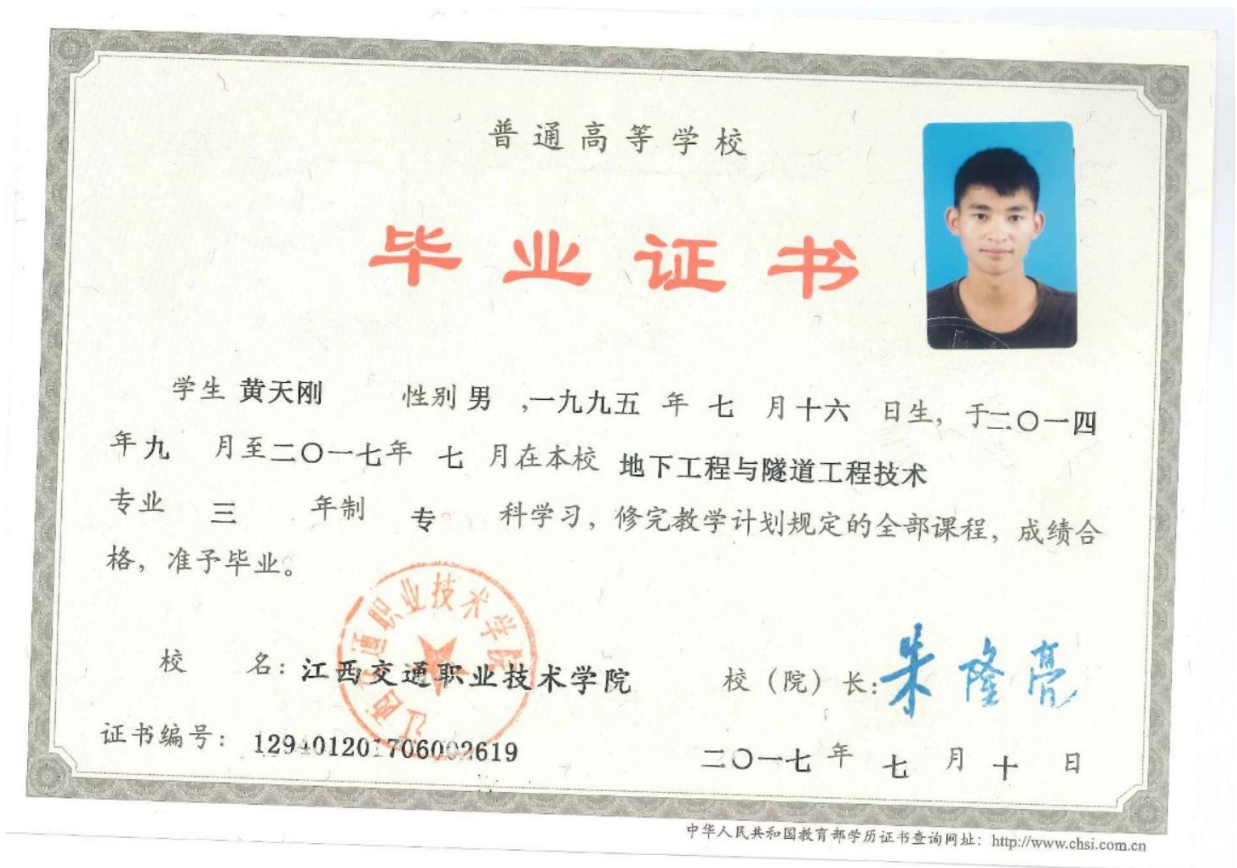 普通高等学校
毕业证书
学生 黄天刚 性别 男 ,一九九五 年 七 月十六 日生，于二〇一四
年九 月至二〇一七年 七 月在本校 地下工程与隧道工程技术
专业 三 年制 专 科学习，修完教学计划规定的全部课程，成绩合
格，准予毕业。
江西交通职业技术学院
校 名：江西交通职业技术学院 校（院）长：朱隆亮
证书编号： 129401201706002619 二〇一七 年 七 月 十 日
中华人民共和国教育部学历证书查询网址：http://www.chsi.com.cn